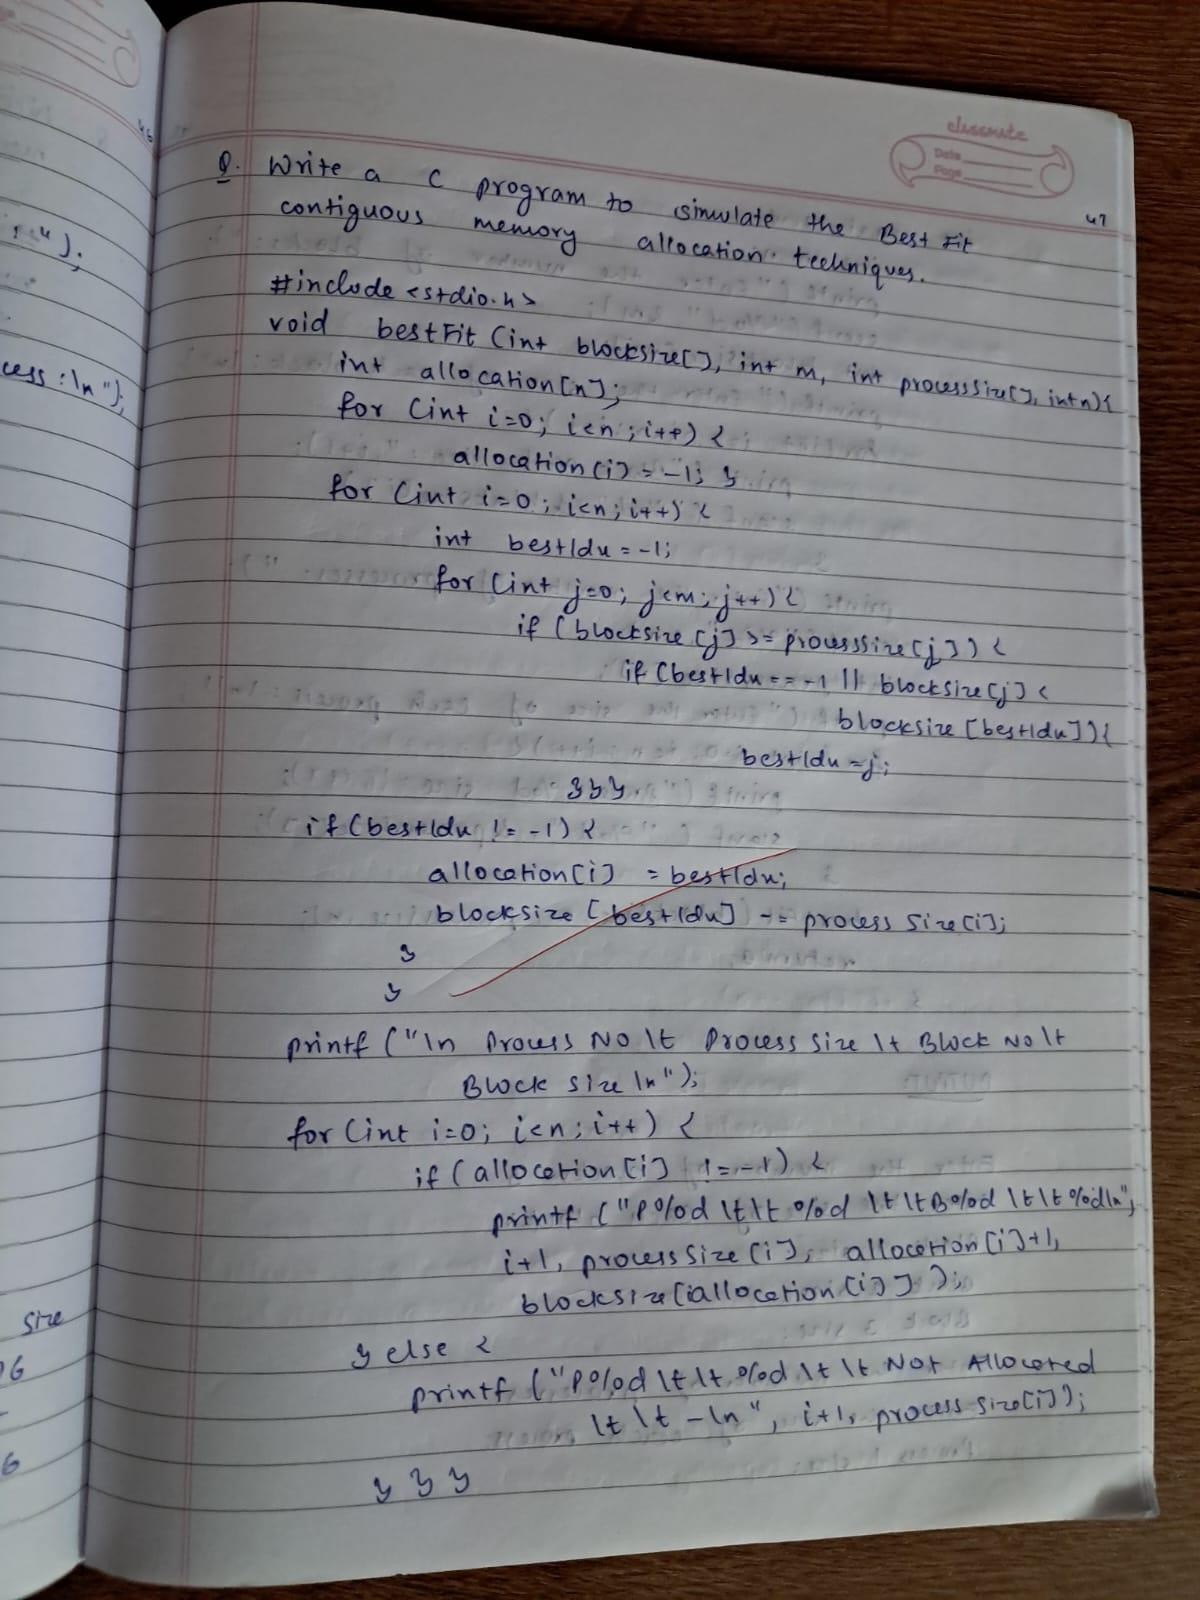 classmate
Date
Page
47
Q. Write a C program to simulate the Best Fit
contiguous memory allocation techniques.
#include <stdio.h>
void bestFit (int blocksize[], int m, int processSize[], int n){
int allocation[n];
for (int i=0; i<n; i++) {
allocation[i] = -1; }
for (int i=0; i<n; i++) {
int bestIdx = -1;
for (int j=0; j<m; j++) {
if (blocksize[j] >= processSize[j]) {
if (bestIdx == -1 || blocksize[j] <
blocksize[bestIdx]){
bestIdx = j;
}}}
if (bestIdx != -1) {
allocation[i] = bestIdx;
blocksize[bestIdx] -= process Size[i];
}
}
printf ("\n Process No \t Process Size \t Block No \t
Block Size \n");
for (int i=0; i<n; i++) {
if (allocation[i] != -1) {
printf ("P%d \t\t %d \t\tB%d \t\t%d\n",
i+1, process Size[i], allocation[i]+1,
blocksize[allocation[i]] );
} else {
printf ("P%d \t\t %d \t\t Not Allocated
\t \t - \n", i+1, process Size[i]);
} } }
46
cess :\n");
Size
06
6